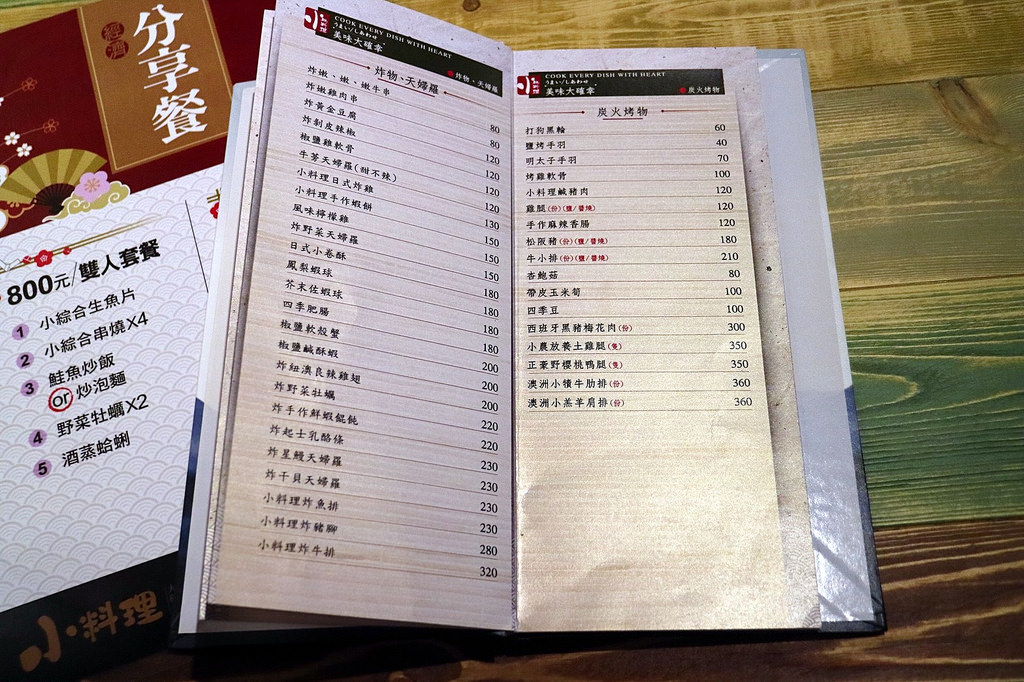 經濟
分享餐
800元/雙人套餐
1 小綜合生魚片
2 小綜合串燒X4
3 鮭魚炒飯
or 炒泡麵
4 野菜牡蠣X2
5 酒蒸蛤蜊
小料理
小料理
COOK EVERY DISH WITH HEART
うまい/しあわせ
美味大確幸
炸物、天婦羅
炸物、天婦羅
炸嫩、嫩、嫩牛串 80
炸嫩雞肉串 80
炸黃金豆腐 120
炸剝皮辣椒 120
椒鹽雞軟骨 120
牛蒡天婦羅(甜不辣) 120
小料理日式炸雞 130
小料理手作蝦餅 150
風味檸檬雞 150
炸野菜天婦羅 150
日式小卷酥 180
鳳梨蝦球 180
芥末佐蝦球 180
四季肥腸 180
椒鹽軟殼蟹 200
椒鹽鹹酥蝦 200
炸紐澳良辣雞翅 200
炸野菜牡蠣 220
炸手作鮮蝦餛飩 220
炸起士乳酪條 230
炸星鰻天婦羅 230
炸干貝天婦羅 230
小料理炸魚排 230
小料理炸豬腳 280
小料理炸牛排 320
小料理
COOK EVERY DISH WITH HEART
うまい/しあわせ
美味大確幸
炭火烤物
炭火烤物
打狗黑輪 60
鹽烤手羽 40
明太子手羽 70
烤雞軟骨 100
小料理鹹豬肉 120
雞腿(份)(鹽/醬燒) 120
手作麻辣香腸 120
松阪豬(份)(鹽/醬燒) 180
牛小排(份)(鹽/醬燒) 210
杏鮑菇 80
帶皮玉米筍 100
四季豆 100
西班牙黑豬梅花肉(份) 300
小農放養土雞腿(隻) 350
正豪野櫻桃鴨腿(隻) 350
澳洲小犢牛肋排(份) 360
澳洲小羔羊肩排(份) 360